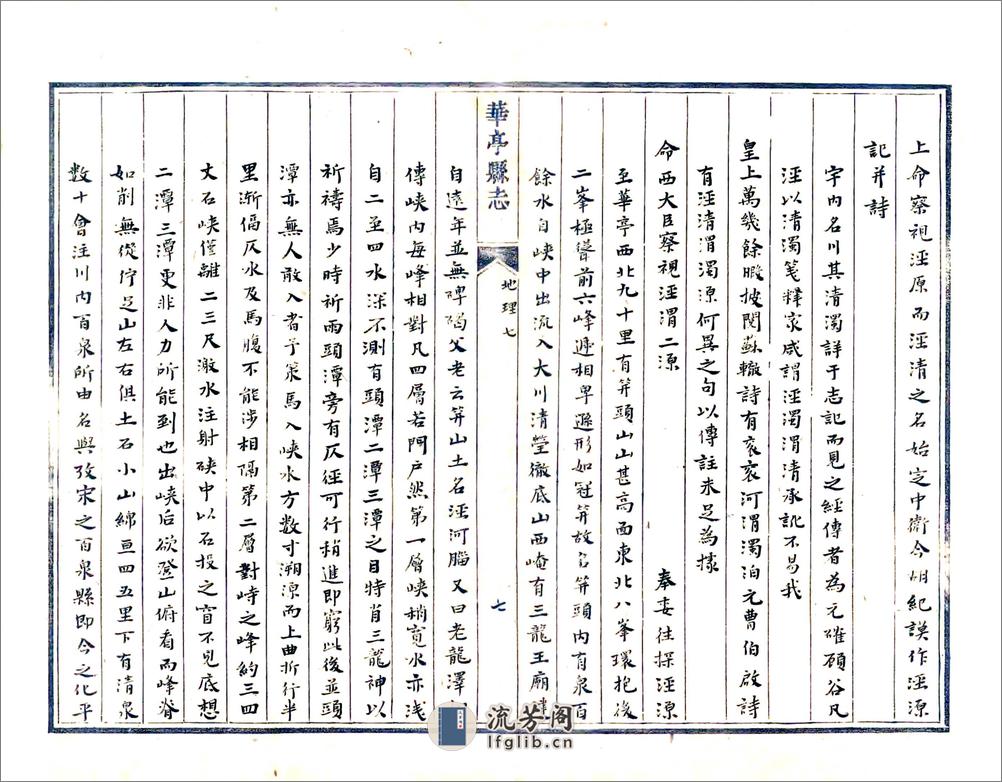 上命察視涇原而涇清之名始定中衛令胡紀謨作涇源
記并詩
宇內名川其清濁詳于志記而見之經傳者為尤確碩谷凡
涇以清濁箋釋家咸謂涇濁渭清承訛不易我
皇上萬幾餘暇披閱蘇轍詩有袞袞河渭濁泊元曹伯啟詩
有涇清渭濁源何異之句以傳註未足為據
命西大臣察視涇渭二源 奉委往探涇源
至華亭西北九十里有笄頭山山甚高面東北八峯環抱後
二峯極聳前六峰遞相卑遜形如冠笄故名笄頭內有泉百
餘水自峽中出流入大川清瑩徹底山西崦有三龍王廟
華亭縣志
地理七
七
自遠年並無碑碣父老云笄山土名涇河腦又曰老龍潭
傳峽內每峰相對凡四層若門户然第一層峽稍寬水亦淺
自二至四水深不測有頭潭二潭三潭之目特肖三龍神以
祈禱焉少時祈雨頭潭旁有仄徑可行稍進即窮此後並頭
潭亦無人敢入者予策馬入峽水方数寸溯源而上曲折行半
里漸偪仄水及馬腹不能涉相隔第二層對峙之峰約三四
丈石峽僅離二三尺激水注射硤中以石投之窅不見底想
二潭三潭更非人力所能到也出峽后欲登山俯看而峰脊
如削無從佇足山左右俱土石小山綿亘四五里下有清泉
数十會注川內百泉所由名與攷宋之百泉縣即今之化平
流芳阁
lfglib.cn